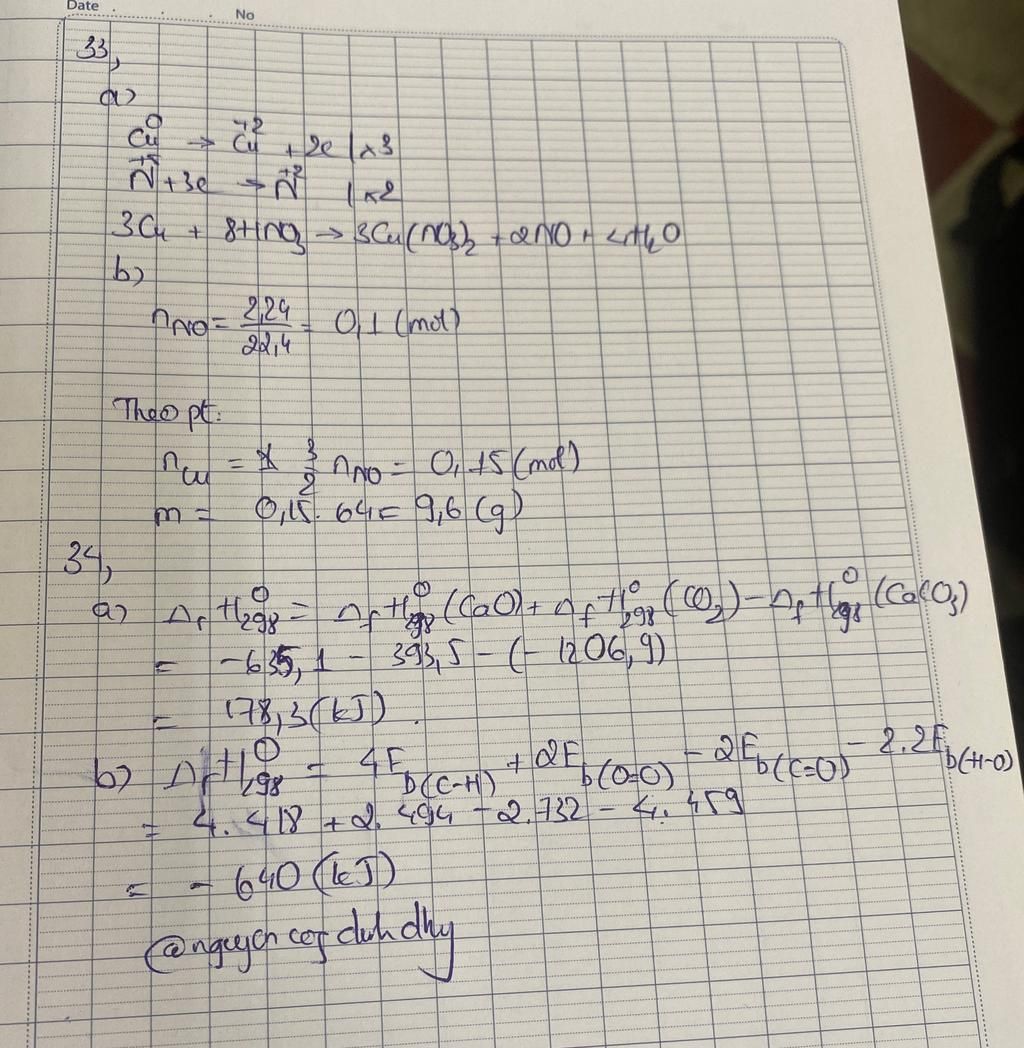 Date . . . No
33,
a)
Cu⁰ → Cu⁺² + 2e | x3
N⁺⁵ + 3e → N⁺² | x2
3Cu + 8HNO₃ → 3Cu(NO₃)₂ + 2NO + 4H₂O
b)
nNO = 2,24/22,4 = 0,1 (mol)
Theo pt:
nCu = 3/2 nNO = 0,15 (mol)
m = 0,15. 64 = 9,6 (g)
34,
a) ΔrH⁰298 = ΔfH⁰298 (CaO) + ΔfH⁰298 (CO₂) - ΔfH⁰298 (CaCO₃)
= -635,1 - 393,5 - (-1206,9)
= 178,3 (kJ).
b) ΔrH⁰298 = 4Eb(C-H) + 2Eb(O=O) - 2Eb(C=O) - 2.2Eb(H-O)
= 4. 418 + 2. 494 - 2.732 - 4. 459
= - 640 (kJ)